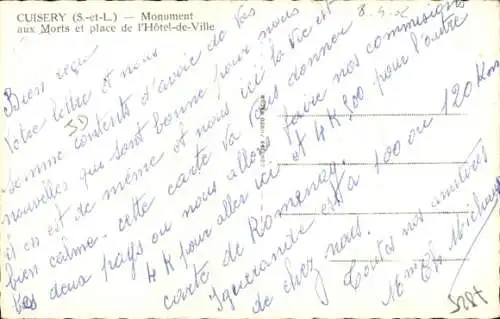 CUISERY (S.-et-L.) — Monument
aux Morts et place de l'Hôtel-de-Ville
8.4.
Bien reçu
Votre lettre et nous
somme contents d'avoir de vos
nouvelles qui sont bonne pour nous
il en est de même et nous ici la vie est
bien calme. cette carte va vous donner
les deux pays ou nous allons faire nos commissions
4 K pour aller ici et 4 K,900 pour l'autre
carte de Romenay.
Iguerande est a 100 ou 120 Km
de chez nous.
Toutes nos amitiées
Mme et Mr Micheau
SD
5287